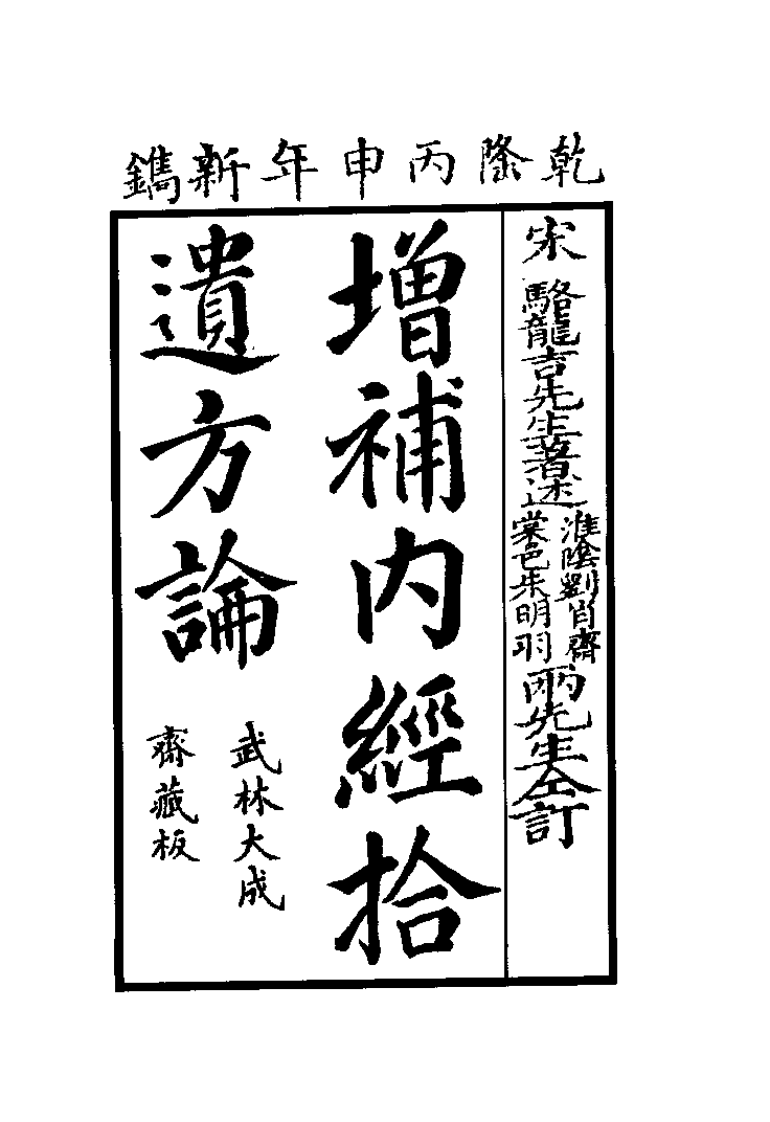 乾隆丙申年新鐫
宋 駱龍吉先生著述
淮陰劉肖齋
棠邑朱明羽
兩先生仝訂
增補內經拾
遺方論
武林大成
齋藏板